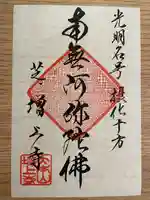 光明名号 摂化十方
南無阿弥陀佛
芝 増上寺